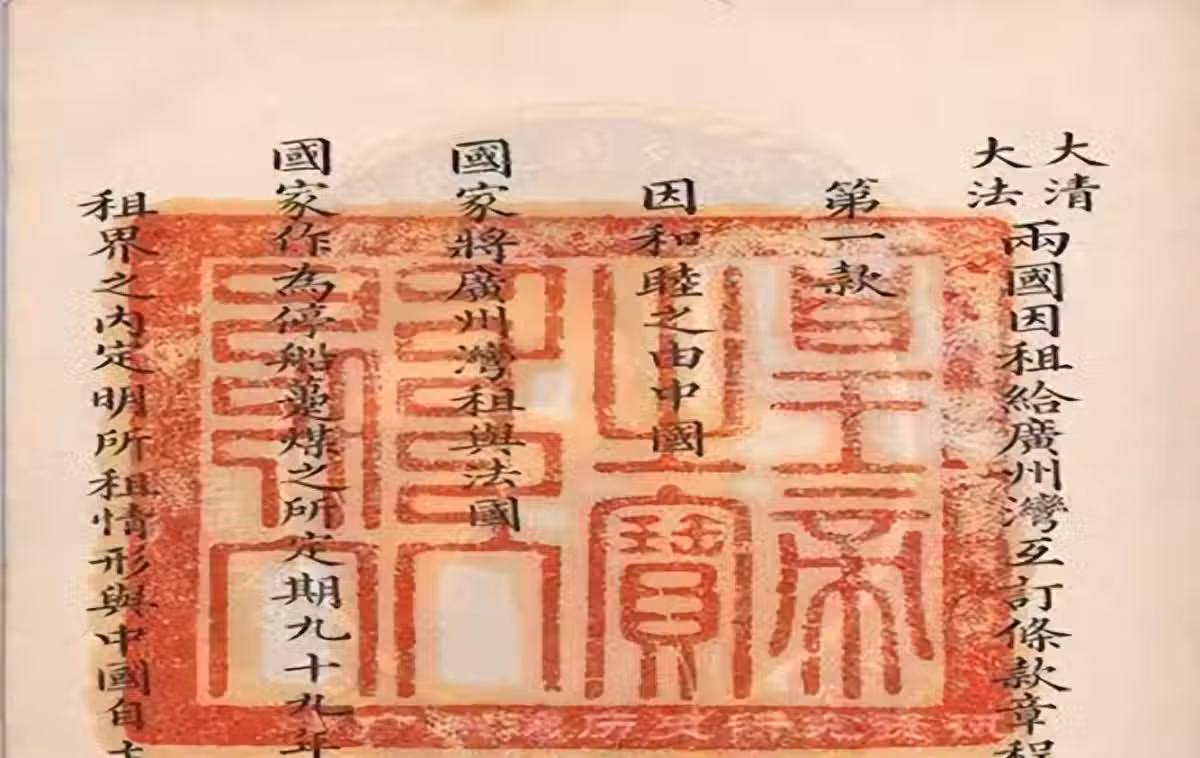 大清
大法
兩國因租給廣州灣互訂條款章程
第一款
因和睦之由中國
國家將廣州灣租與法國
國家作為停船躉煤之所定期九十九年
租界之內定明所租情形與中國自
皇帝
之寶